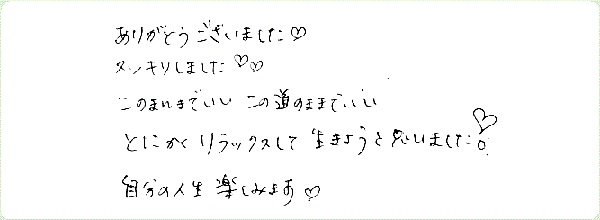 ありがとうございました♡
スッキリしました♡♡
このままでいい この道のままでいい
とにかくリラックスして 生きようと思いました♡。
自分の人生 楽しみます♡